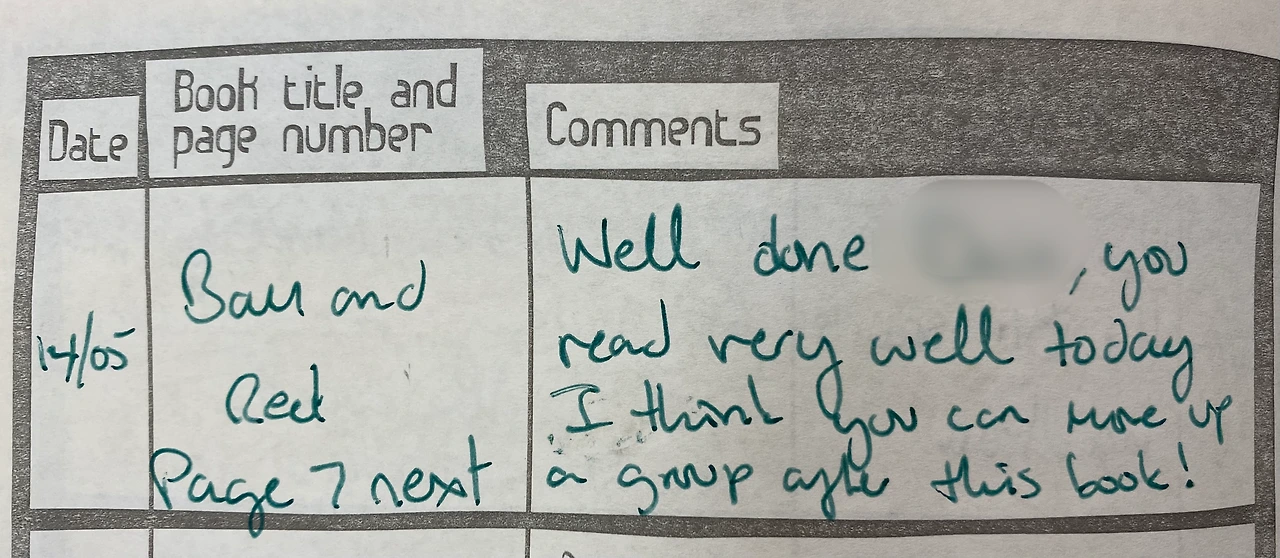 Date
Book title and
page number
Comments
14/05
Ball and
Page 7 next
Well done , you
read very well today
I think you can move up
a group after this book!